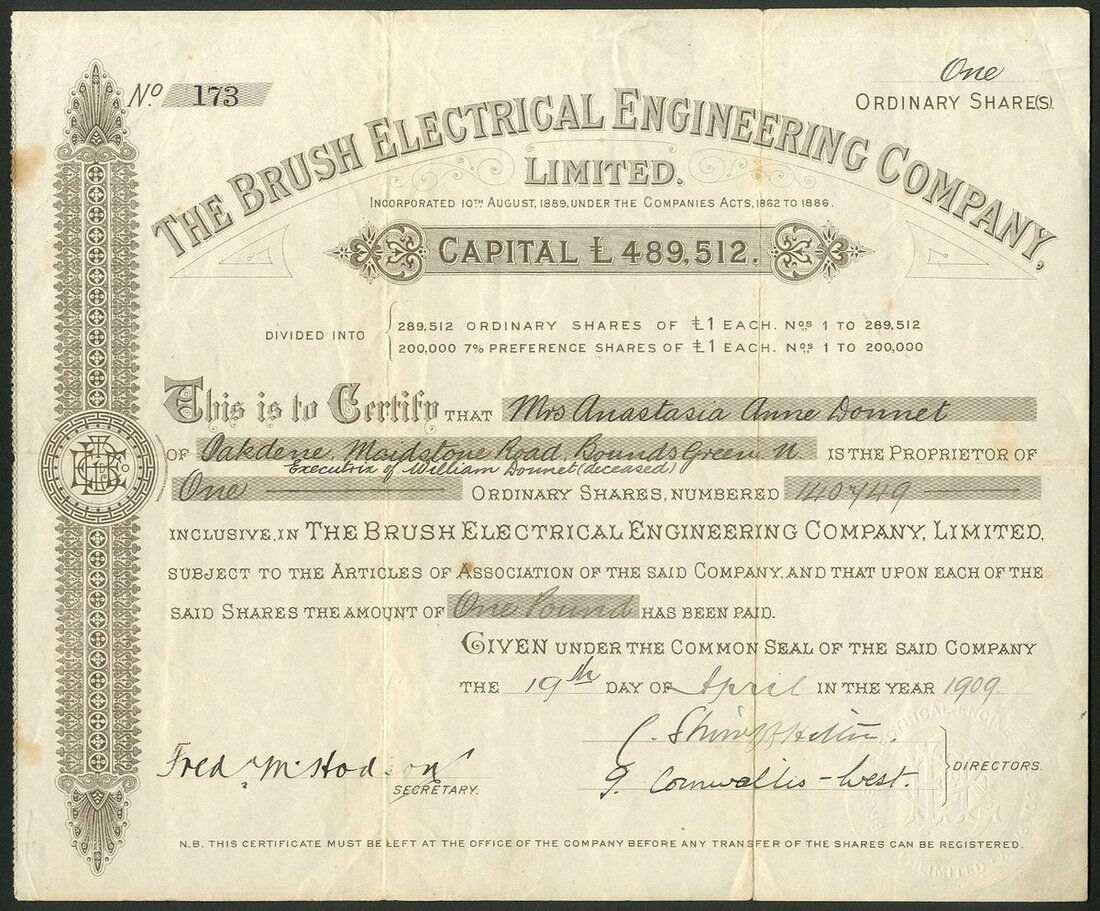 No. 173
One
ORDINARY SHARE(S).
THE BRUSH ELECTRICAL ENGINEERING COMPANY,
LIMITED.
INCORPORATED 10TH AUGUST, 1889, UNDER THE COMPANIES ACTS, 1862 TO 1886.
CAPITAL £489,512.
DIVIDED INTO
289,512 ORDINARY SHARES OF £1 EACH. Nos 1 TO 289,512
200,000 7% PREFERENCE SHARES OF £1 EACH. Nos 1 TO 200,000
This is to Certify THAT Mrs Anastasia Anne Donnet
OF Oakdene, Maidstone Road, Bounds Green N. IS THE PROPRIETOR OF
Executrix of William Donnet (deceased)
One ORDINARY SHARES, NUMBERED 140749
INCLUSIVE, IN THE BRUSH ELECTRICAL ENGINEERING COMPANY, LIMITED,
SUBJECT TO THE ARTICLES OF ASSOCIATION OF THE SAID COMPANY, AND THAT UPON EACH OF THE
SAID SHARES THE AMOUNT OF One Pound HAS BEEN PAID.
GIVEN UNDER THE COMMON SEAL OF THE SAID COMPANY
THE 19th DAY OF April IN THE YEAR 1909.
Fred M. Hodson
SECRETARY.
G. Cornwallis-West.
DIRECTORS.
N.B. THIS CERTIFICATE MUST BE LEFT AT THE OFFICE OF THE COMPANY BEFORE ANY TRANSFER OF THE SHARES CAN BE REGISTERED.